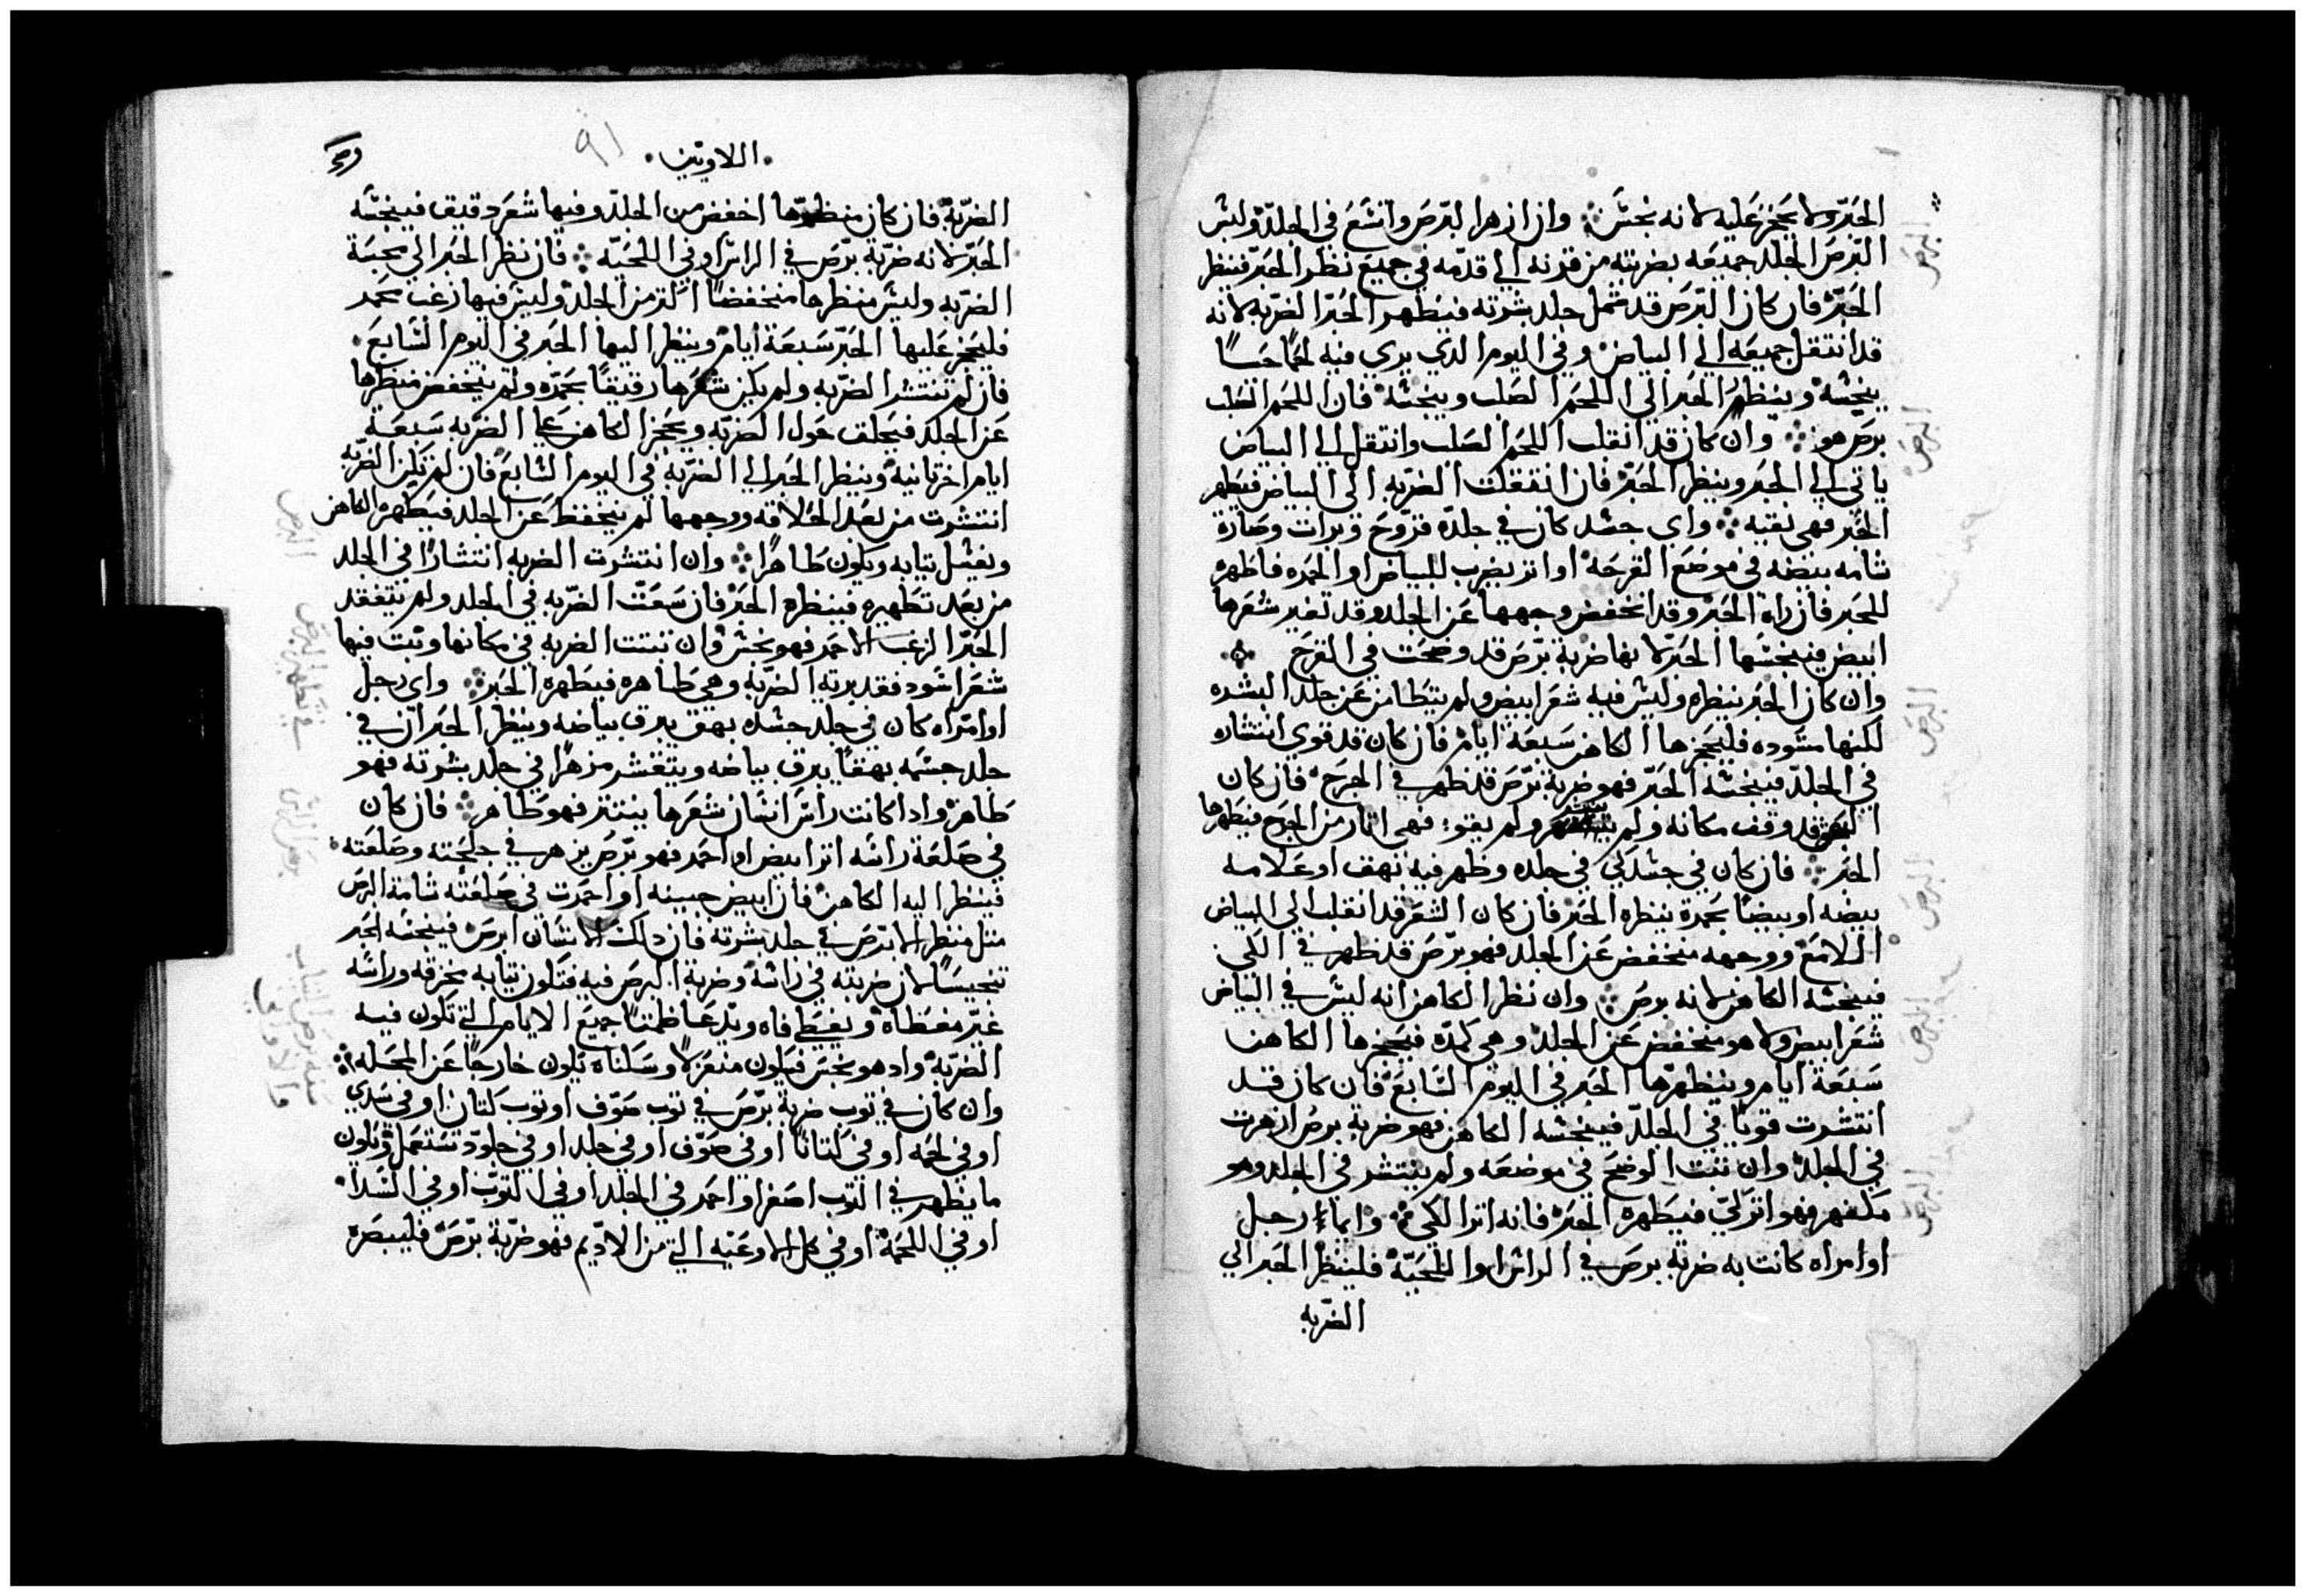 الحَبرّ ولا يحَجز عَليه لانه نجسّ ۞ وان ازهرا لبَرصَ واتسَعَ في الجلدّ ولبسّ
البَرصَ الجلد جميعَه بضربته من قرنه الى قدمّه في جميع نظر الحَبرّ فينظر
الحَبرّ فان كان البَرصَ قد شمل جلد بشرته فيطهر الحَبرّ الضربه لانه
قد انتقل جميعَه الى البياض وفي اليوم الدي يري فيه لحمًا حَسَّاً
ينجسّه وينظر الحَبر الي اللحَم الصَلب وينجسّه فان اللحَم الصَلب
برصَ هو ۞ وان كان قد انقلب اللحَم الصَلب وانتقل الي البياض
ياتي الي الحَبر وينظر الحَبرّ فان انتقلت الضربه الي البياض فيطهر
الحَبر فهي نقيه ۞ واي جسّد كان في جلدّه قرّوحَ وبرات وصَارة
شامه بيضه في موضعَ القرحَه او اثر يضرب للبياض او الحمَره فاظهرّ
للحَبر فان راه الحَبرّ وقد انخفض وجهها عَن الجلد وقد تغير شعَرها
ابيض فينجسّها الحَبرّ لانها ضربة برّصَ قد وضحَت في القرحَ ۞
وان كان الحَبر ينظره وليسّ فيه شعَر ابيض ولم يتطامن عَن جلد البشره
لكنها مسّوده فليحَجزها الكاهن سَبعَة ايام فان كان قد قوي انتشاره
في الجلدّ فينجسّه الحَبرّ فهو ضربة برّصَ قد ظهرت في الجرحَ فان كان
قد وقف مكانه ولم ينتشر ولم يقوا فهي اثار من الجرح فيطهرها
الحَبر ۞ فان كان في جسّد كي في جلده وظهر فيه بهق او عَلامه
بيضه او بيضًا بحَمرة ينظره الحَبر فان كان الشعَر قد انقلب الي البياض
اللامعَ ووجهه منخفض عَن الجلد فهو برّصَ قد ظهر في الكي
فينجسّه الكاهن لانه برصَ ۞ وان نظر الكاهن انه ليسّ في البياض
شعَر ابيض ولا هو منخفض عَن الجلد وهي كمدّه فيحَجزها الكاهن
سَبعَة ايام وينظرها الحَبر في اليوم السَّابعَ فان كان قد
انتشرت قويًا في الجلدّ فينجسّه الكاهن فهو ضربة برصَ ازهرت
في الجلد وان ثبت الوضحَ في موضعَه ولم ينتشر في الجلد وهو
مكفهر فهو اثر كيّ فيطهره الحَبرّ فانه اثر الكي ۞ وايما رجل
او امراه كانت به ضربة برصَ في الراسّ او اللحَيّة فلينظر الحَبر الي
الضربه
البرصَ
البرصَ
البرصَ
البرصَ
البرصَ
البرصَ
اللاويّين
٩١
الضربّة فان كان منظرها اخفض من الجلد وفيها شعَر دقيق فينجسّه
الحَبرّ لانه ضربّة برّصَ في الراسّ او في اللحَيّه ۞ فان نظر الحَبر الي محِبَة
الضربه وليسّ منظرها منخفضًا اكثر من الجلد وليسّ فيها زغب بحمَر
فليحَجز عَليها الحَبرّ سَبعَة ايام وينظر اليها الحَبر في اليوم السَّابعَ
فان لم تنتشر الضربه ولم يكن شعَرها رقيقًا بحمَرّه ولم ينخفض منظرها
عَن الجلد فيحَلق حَول الضربّه ويحَجز الكاهن عَلي الضربه سَبعَة
ايام اخر ثانيه وينظر الحَبر الي الضربّه في اليوم السَّابعَ فان لم تكن الضربّه
انتشرت من بعَد الحَلاقه ووجهها لم ينخفظ عَن الجلد فيطهره الكاهن
ويغسّل ثيابه ويكون طاهرًا ۞ وان انتشرت الضربه انتشارًا في الجلد
من بعَد تطهيره فينظره الحَبرّ فان سَعَتّ الضرّبه في الجلد ولم يتفقد
الحَبرّ الزغب الاحمَر فهو نجسّ وان ثبتت الضربه في مكانها ونبت فيها
شعَر اسّود فقد بريّه الضربّه وهي طاهره فيطهره الحَبر ۞ واي رجل
او امرّاه كان في جلد جسّده بهق يبرق بياضه وينظر الحَبر ان في
جلد جسّمه بهقاً يبرق بياضه ويتقشر مزهرًا في جلد بشرته فهو
طاهر وادا كانت راسّ انسَان شعَرها ينتثر فهو طاهر ۞ فان كان
في صَلعَة راسّه اثر ابيض او احمَر فهو برّصَ يزهر في جلحَته وصَلعَته
فينظر اليه الكاهن فان ابيض جبينه او احمَرت في صَلعَته شامة البرصَ
مثل منظر الابرّصَ في جلد بشرته فان دلك الانسَّان ابرصَ فينجسّه الحَبر
تنجيسًا لان ضربته في راسّه وضربة البرصَ فيه فتكون ثيابه مخرقه وراسّه
غيّر مغطاه ويغطي فاه ويدّعَا طمثًا جميعَ الايام التي تكون فيه
الضربّة واد هو نجسّ فيكون منعَزلًا وسَكناه تكون خارجًا عَن المحَله ۞
وان كان في ثوب ضربة برّصَ في ثوب صَوّف او ثوب كتان او في سَدي
او في لحمَه او في كتاناً او في صَوّف او في جلد او في جلودّ تسَتعَمل وتكون
ما يظهر في الثوب اصَفر او احمَر في الجلد او في الثوبّ او في السَّدا
او في اللحمَة او في كل الاوعَيّه التي من الاديّم فهو ضربّة برّصَ فليبصَره
البرص
في تطهير البرص
برص الراس